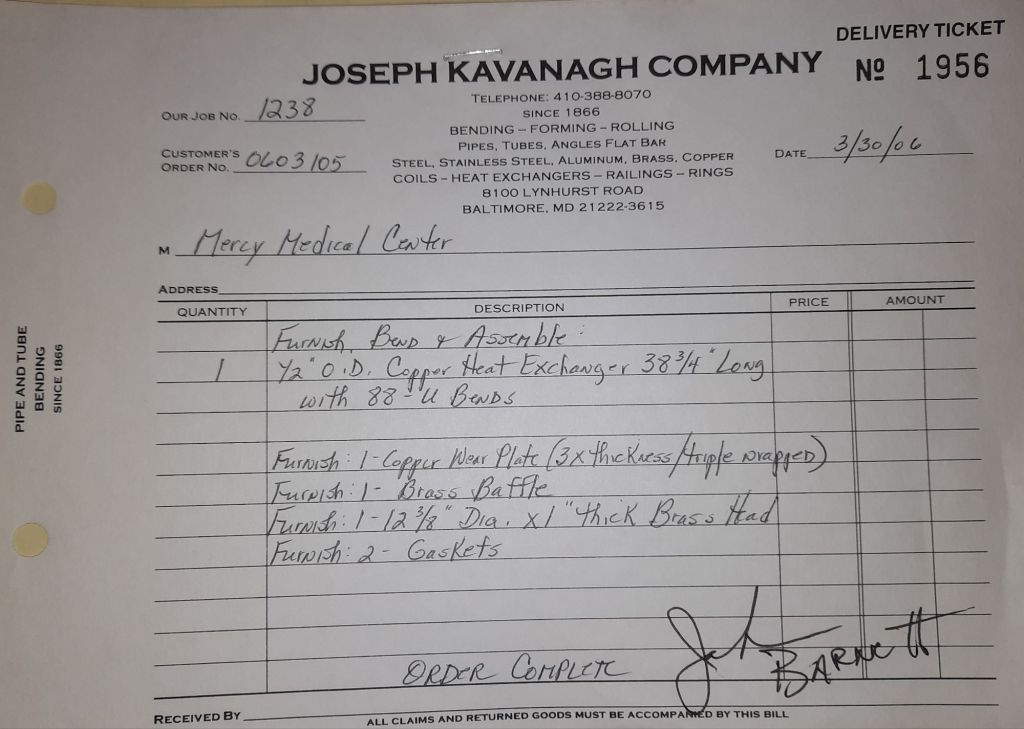 DELIVERY TICKET
JOSEPH KAVANAGH COMPANY
Nº 1956
TELEPHONE: 410-388-8070
SINCE 1866
BENDING – FORMING – ROLLING
PIPES, TUBES, ANGLES FLAT BAR
STEEL, STAINLESS STEEL, ALUMINUM, BRASS, COPPER
COILS – HEAT EXCHANGERS – RAILINGS – RINGS
8100 LYNHURST ROAD
BALTIMORE, MD 21222-3615
OUR JOB NO. 1238
CUSTOMER'S
ORDER NO. 0603105
DATE 3/30/06
M Mercy Medical Center
ADDRESS
QUANTITY DESCRIPTION PRICE AMOUNT
Furnish, Bend & Assemble:
1 1/2" O.D. Copper Heat Exchanger 38 3/4" Long
with 88-U Bends
Furnish: 1-Copper Wear Plate (3x thickness/triple wrapped)
Furnish: 1- Brass Baffle
Furnish: 1-12 3/8" Dia. x1" thick Brass Head
Furnish: 2- Gaskets
ORDER COMPLETE
BARNETT
RECEIVED BY
ALL CLAIMS AND RETURNED GOODS MUST BE ACCOMPANIED BY THIS BILL
PIPE AND TUBE
BENDING
SINCE 1866